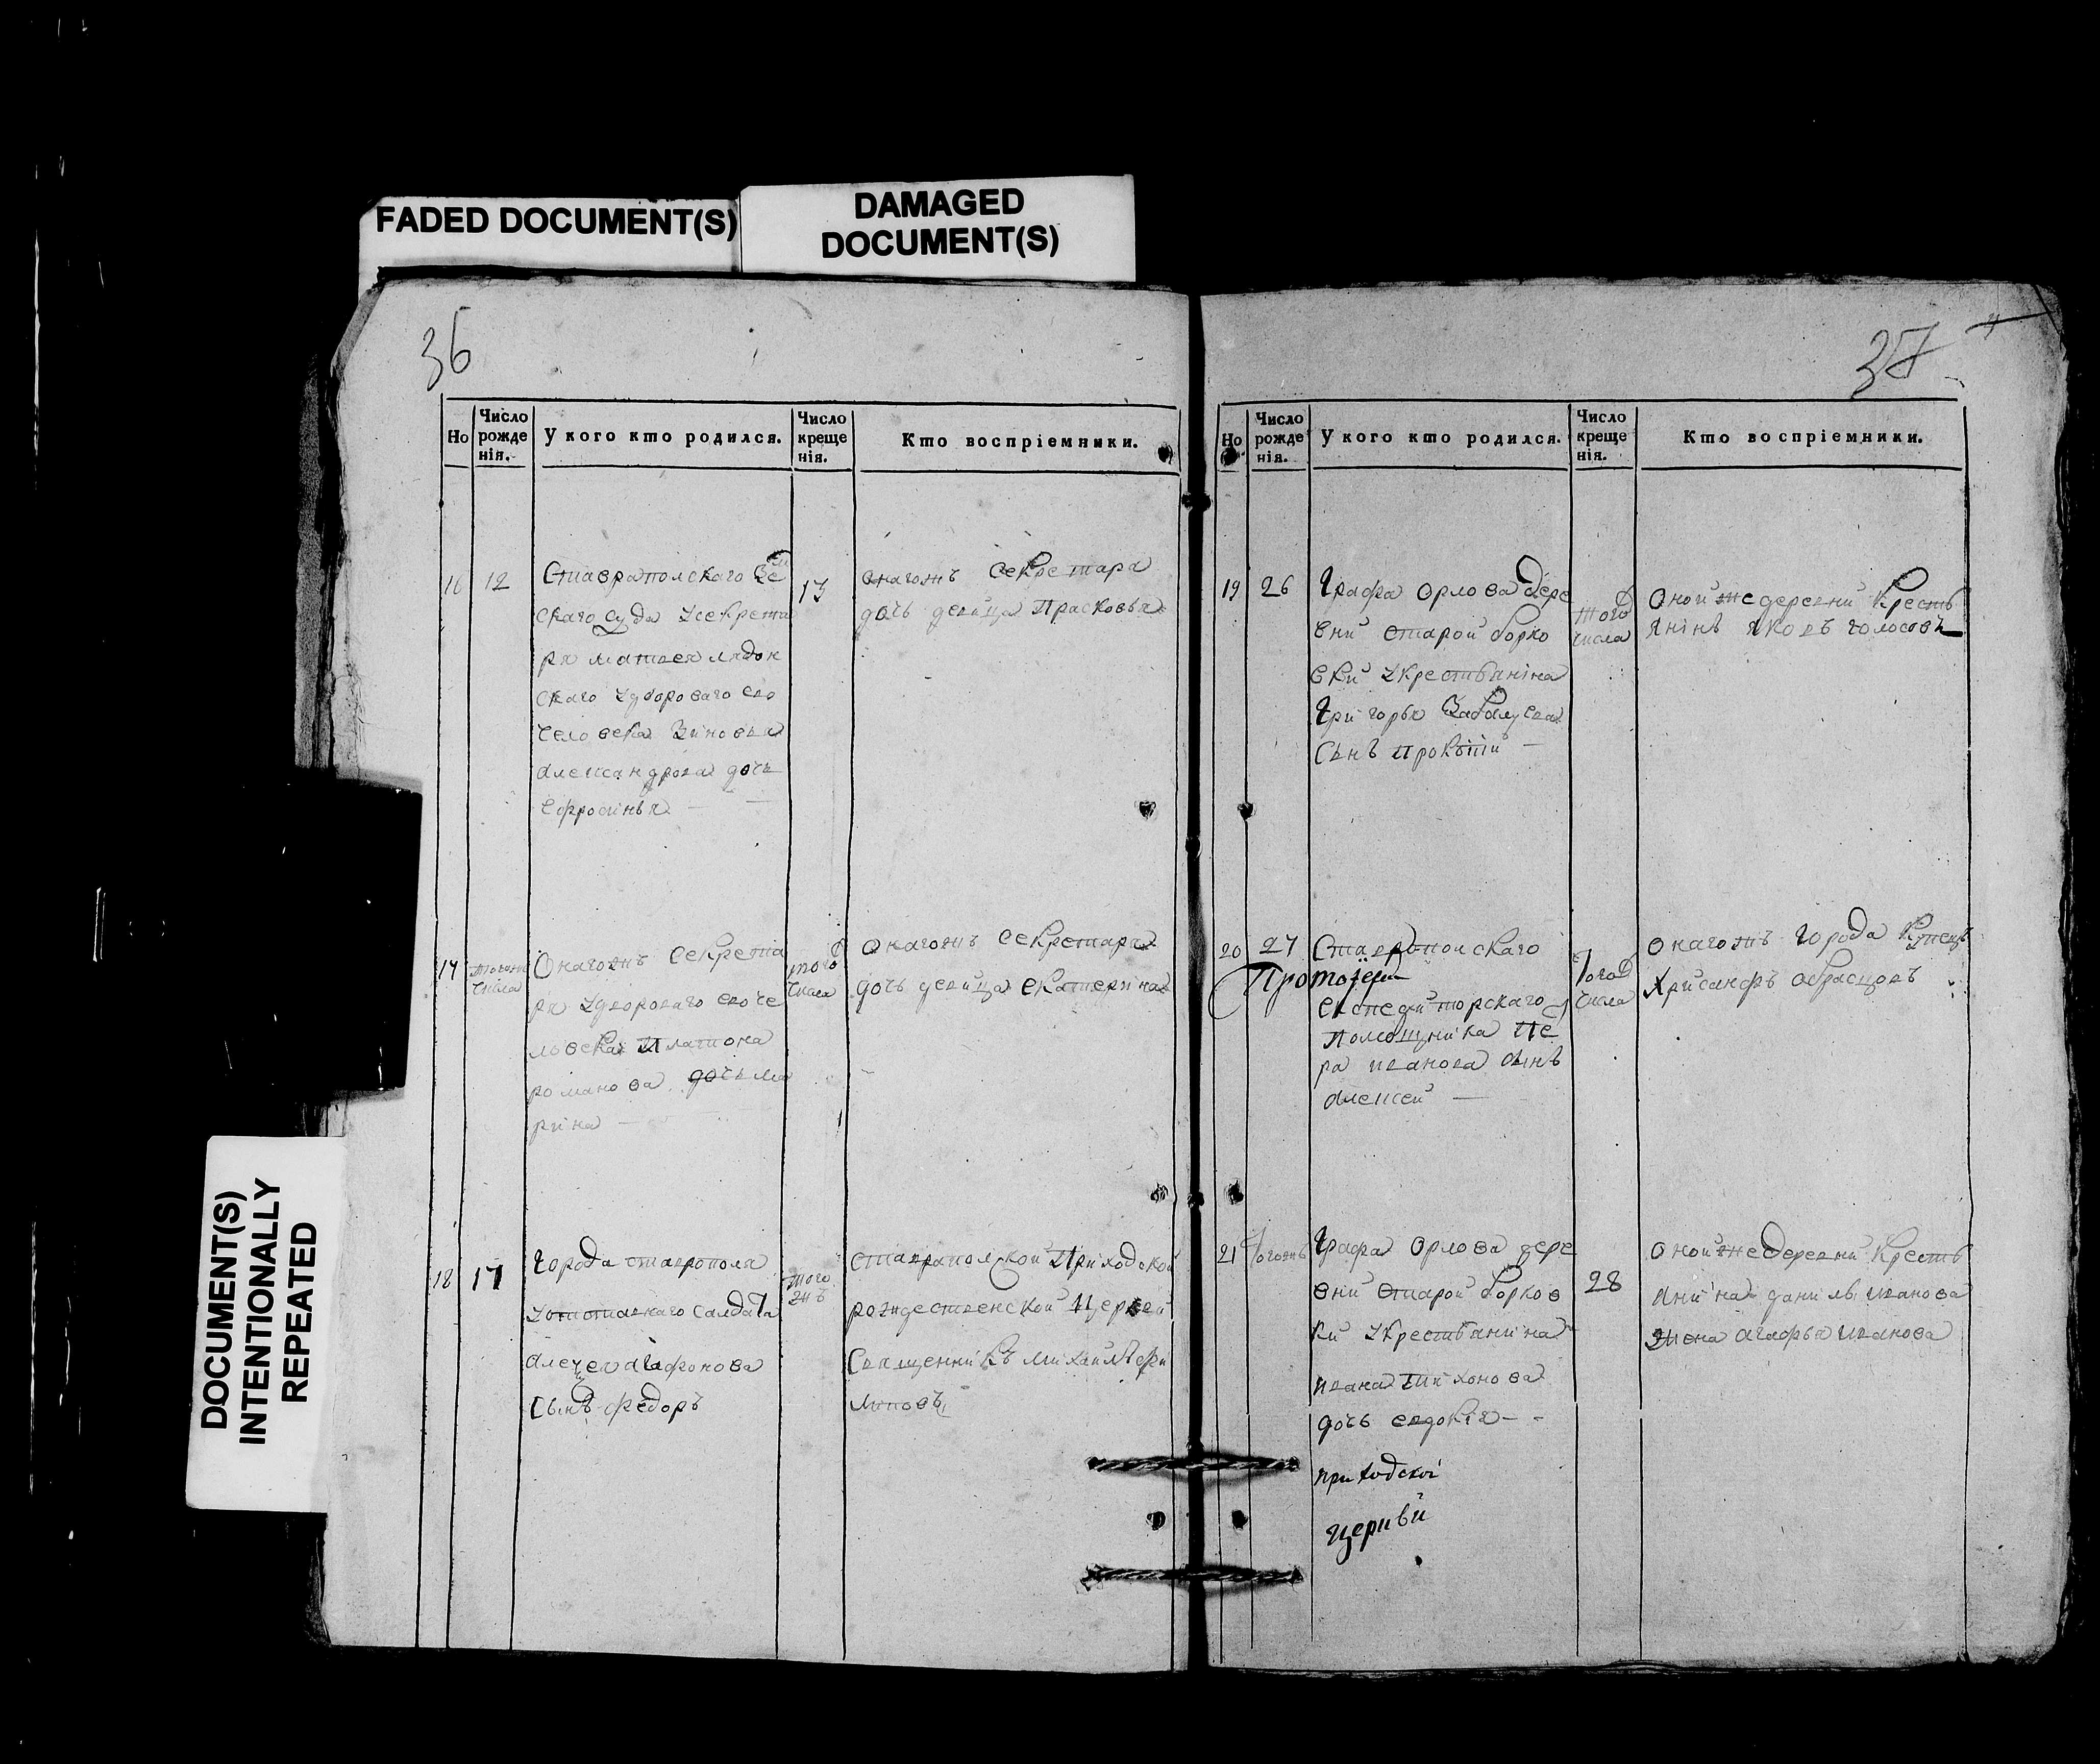 FADED DOCUMENT(S)
DAMAGED
DOCUMENT(S)
DOCUMENT(S)
INTENTIONALLY
REPEATED
36
Но
Число рожде нія.
У кого кто родился.
Число креще нія.
Кто воспріемники.
16
12
Ставрапольскаго Зем
скаго суда усекрета
ря матвея
скаго удвороваго ево
человека Зиновья
александрова дочь
ефросинья
13
онагожъ секретара
дочь девица Прасковья
17
тогожъ
числа
Онагожъ секрета
ря удвороваго ево че
ловека Платона
романова дочь ма
рина
того
числа
онагожъ секретаря
дочь девица екатерина
18
17
города ставрополя
уотставнаго салдата
агафонова
сынъ федоръ
того
жъ
ставрапольской Приходской
рождественской Церквй
Священникъ михаилъ фи
липовъ
37
Но
Число рожде нія.
У кого кто родился.
Число креще нія.
Кто воспріемники.
19
26
графа орлова дере
вни старой борко
вки укрестьяніна
григорья
сынъ прокопий
того
числа
оной же деревни кресть
янінъ яковъ голосовъ
20
27
Ставропольскаго
Протоіерей
експедиторскаго
помощника Пе
ра иванова сынъ
алексей
того
числа
онагожъ города купецъ
хрисанфъ образцовъ
21
тогожъ
графа орлова дере
вни старой борков
ки укрестьянина
ивана тихонова
дочь евдокія
приходской
церкви
28
оной же деревни кресть
янина данилы иванова
жена агафья иванова